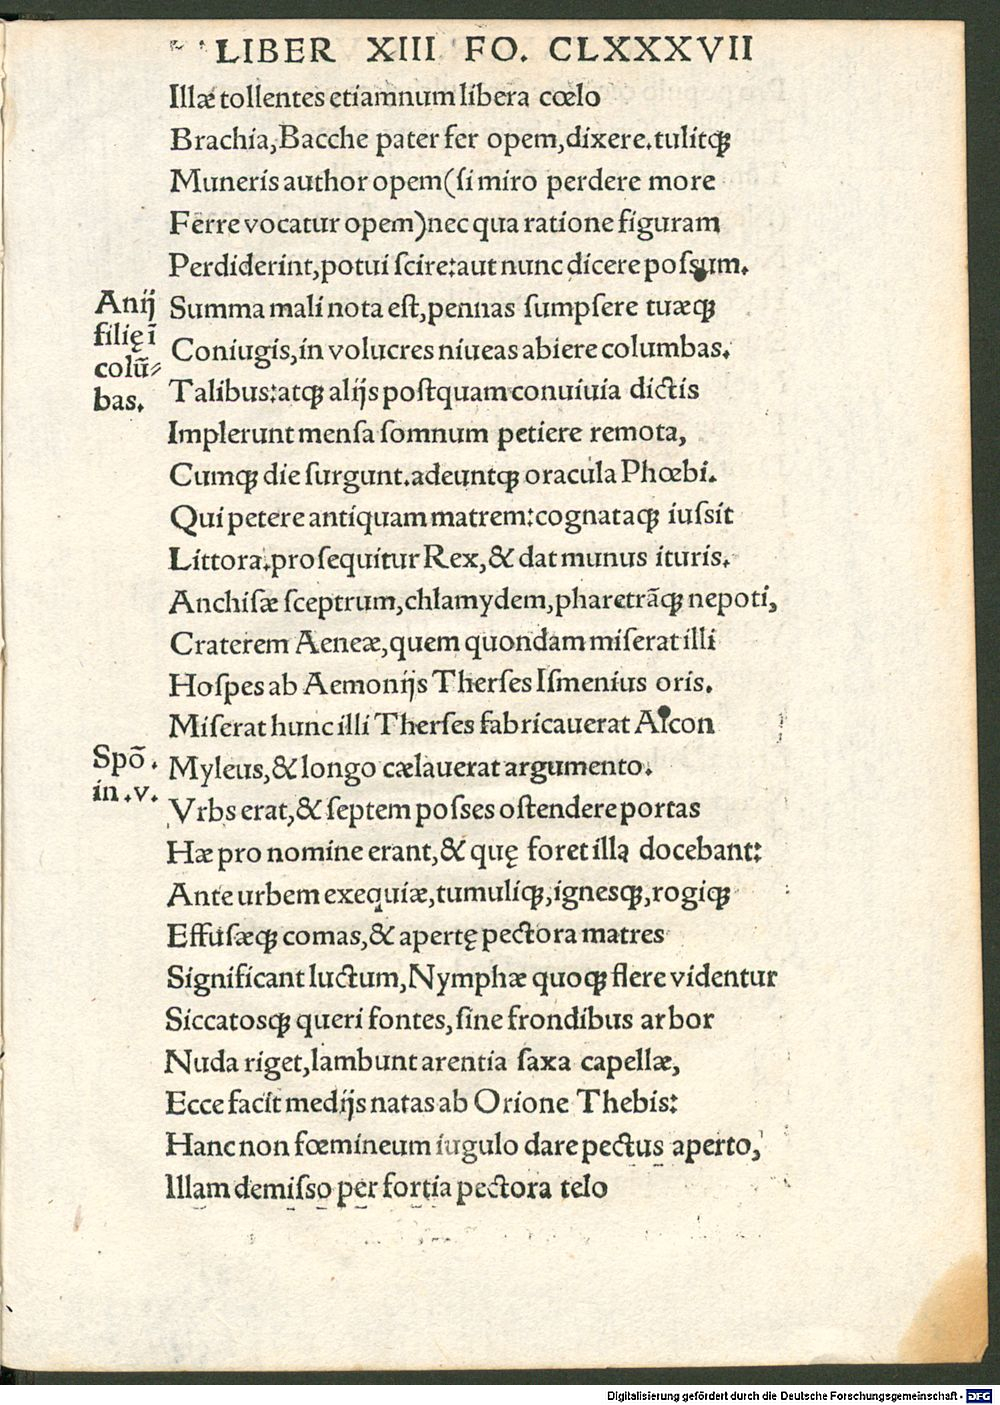 LIBER XIII FO. CLXXXVII
Illæ tollentes etiamnum libera cœlo
Brachia, Bacche pater fer opem, dixere. tulitqꝫ
Muneris author opem (si miro perdere more
Ferre vocatur opem) nec qua ratione figuram
Perdiderint, potui scire: aut nunc dicere possum.
Anij
filię ī
colū⸗
bas.
Summa mali nota est, pennas sumpsere tuæqꝫ
Coniugis, in volucres niueas abiere columbas.
Talibus: atqꝫ alijs postquam conuiuia dictis
Implerunt mensa somnum petiere remota,
Cumqꝫ die surgunt. adeuntqꝫ oracula Phœbi.
Qui petere antiquam matrem: cognataqꝫ iussit
Littora. prosequitur Rex, & dat munus ituris.
Anchisæ sceptrum, chlamydem, pharetrāqꝫ nepoti,
Craterem Aeneæ, quem quondam miserat illi
Hospes ab Aemonijs Therses Ismenius oris.
Miserat hunc illi Therses fabricauerat Alcon
Spō.
in .v.
Myleus, & longo cælauerat argumento.
Vrbs erat, & septem posses ostendere portas
Hæ pro nomine erant, & quę foret illa docebant:
Ante urbem exequiæ, tumuliqꝫ, ignesqꝫ, rogiqꝫ
Effusæqꝫ comas, & apertę pectora matres
Significant luctum, Nymphæ quoqꝫ flere videntur
Siccatosqꝫ queri fontes, sine frondibus arbor
Nuda riget, lambunt arentia saxa capellæ,
Ecce facit medijs natas ab Orione Thebis:
Hanc non fœmineum iugulo dare pectus aperto,
Illam demisso per fortia pectora telo
Digitalisierung gefördert durch die Deutsche Forschungsgemeinschaft - DFG